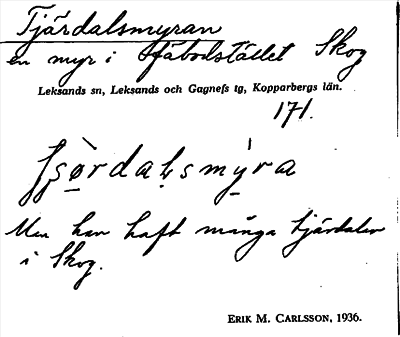 Tjärdalsmyran
en myr i fäbodstället Skog
Leksands sn, Leksands och Gagnefs tg, Kopparbergs län.
171.
Man har haft många tjärdalar
i Skog.
ERIK M. CARLSSON, 1936.